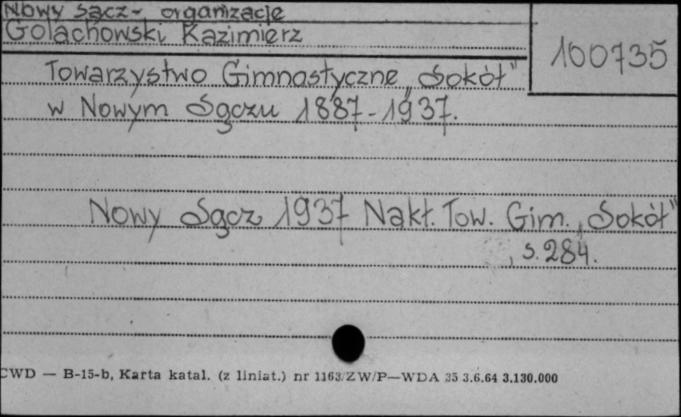 Nowy Sącz - organizacje
Golachowski Kazimierz
100735
Towarzystwo Gimnastyczne „Sokół"
w Nowym Sączu 1887-1937.
Nowy Sącz 1937 Nakł. Tow. Gim. „Sokół"
, s. 284.
CWD — B-15-b, Karta katal. (z liniat.) nr 1163/ZW/P—WDA 35 3.6.64 3.130.000